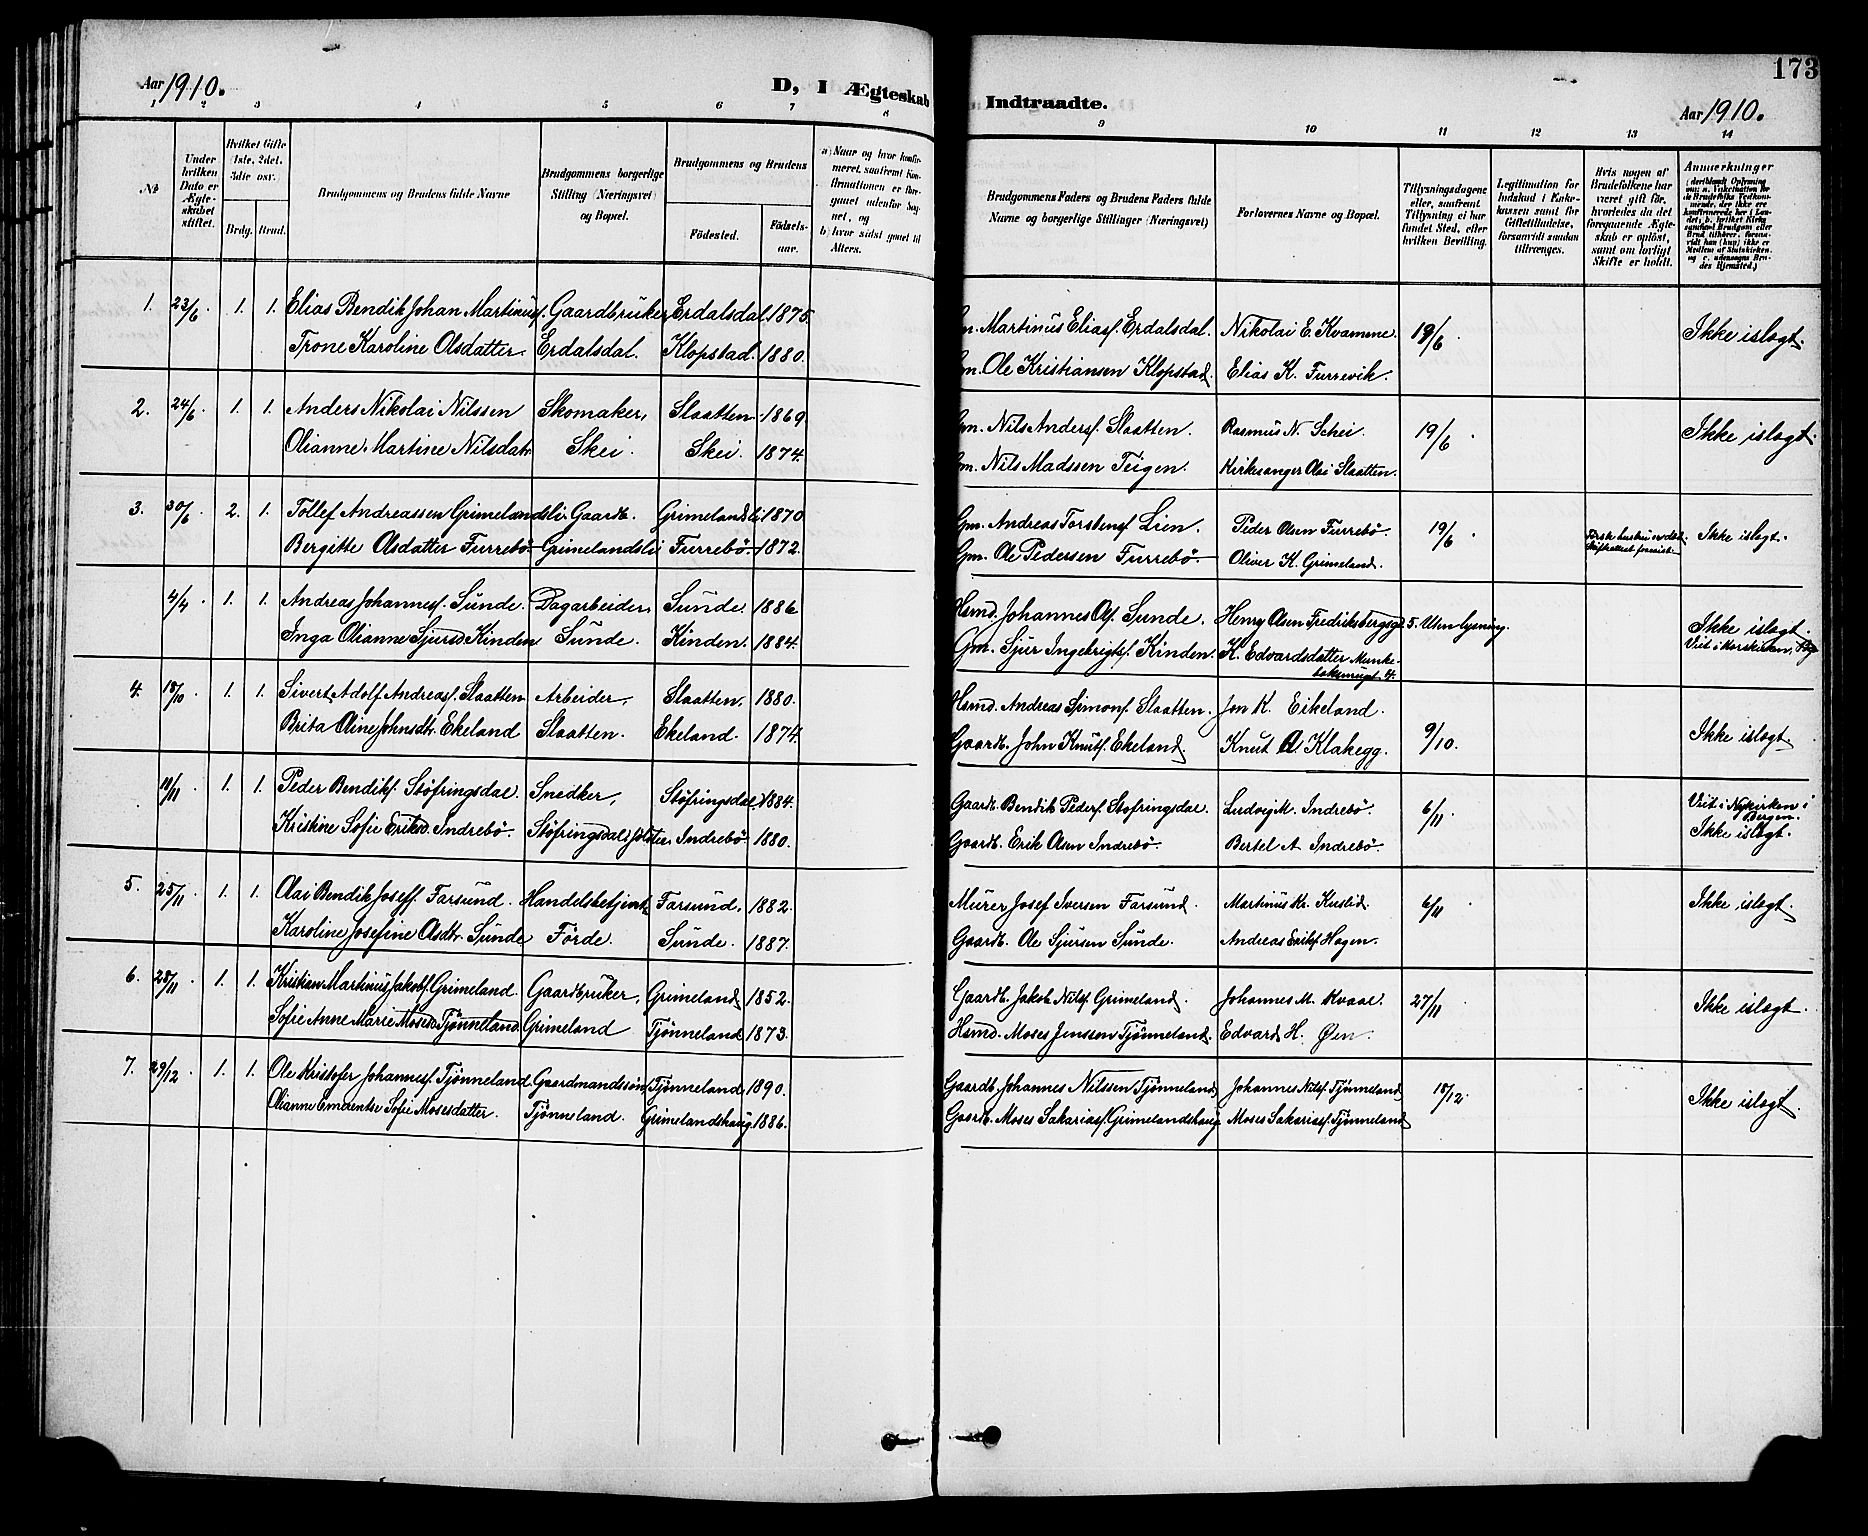 Aar 1910.
D, i Ægteskab
Indtraadte.
Aar 1910.
173
1 2 3 4 5 6 7 8
9 10 11 12 13 14
No
Under hvilken Dato er Ægteskabet stiftet.
Hvilket Gifte (1ste, 2det, 3die osv.
Brdg. Brud.
Brudgommens og Brudens fulde Navne
Brudgommens borgerlige Stilling (Næringsvei) og Bopæl.
Brudgommens og Brudens
Födested.
Födselsaar.
a) Naar og hvor konfirmeret, saafremt Konfirmationen er foregaaet udenfor Sognet, og
b) hvor sidst gaaet til Alters.
Brudgommens Faders og Brudens Faders fulde Navne og borgerlige Stillinger (Næringsvei)
Forlovernes Navne og Bopæl.
Tillysningsdagene eller, saafremt Tillysning ei har fundet Sted, efter hvilken Bevilling.
Legitimation for Indskud i Enkekassen samt for Giftetilladelse, forsaavidt saadan tiltrænges.
Hvis nogen af Brudefolkene har været gift før, hvorledes da det foregaaende Ægteskab er opløst, samt om lovligt Skifte er holdt.
Anmærkninger
1. 23/6. 1. 1. Elias Bendik Johan Martinusf. Gaardbruker, Erdalsdal. 1875. Gm. Martinus Eliasf. Erdalsdal. Nikolai E. Kvamme. 19/6. Ikke islægt.
Trone Karoline Olsdatter. Erdalsdal. Klopstad. 1880. Gm. Ole Kristiansen Klopstad. Elias K. Furrevik.
2. 24/6. 1. 1. Anders Nikolai Nilssen Skomaker, Slaatten. 1869. Gm. Nils Andersf. Slaatten. Rasmus N. Schei. 19/6. Ikke islægt.
Olianne Martine Nilsdatr Skei. Skei. 1874. Gm. Nils Madssen Teigen. Kirkesanger Olai Slaatten.
3. 30/6. 2. 1. Tollef Andreassen Grimelandsli. Gaardb. Grimelandsli 1870 Gm. Andreas Torstensf. Lien. Peder Olsen Furrebö. 19/6. Ikke islægt.
Bergitte Olsdatter Furrebö Grimelandsli Furrebö 1872. Gm. Ole Pedersen Furrebö. Oliver K. Grimeland.
4/4. 1. 1. Andreas Johannesf. Sunde. Dagarbeider, Sunde. 1886. Hsmd. Johannes Olsf. Sunde. Henry Olsen Fredriksbergsgd. 5. Uten lysning. Ikke islægt.
Inga Olianne Sjursd. Kinden Sunde. Kinden. 1884. Gm. Sjur Ingebrigtsf. Kinden. K. Edvardsdatter Munke- Viet i Korskirken,
4. 18/10. 1. 1. Sivert Adolf Andreasf. Slaatten Arbeider, Slaatten, 1880. Hsmd. Andreas Simonf. Slaatten. Jon K. Eikeland. 9/10. Ikke islægt.
Brita Oline Johnsdtr. Ekeland Slaatten. Ekeland. 1874. Gaardb. John Knutf. Ekeland. Knut A. Klakegg.
11/11. 1. 1. Peder Bendiksf. Stöfringsdal. Snedker, Stöfringsdal. 1884. Gaardb. Bendik Pedersf. Stofringsdal. Ludvig M. Indrebö. 6/11. Viet i Nykirken i Bergen.
Kristine Sofie Eriksd. Indrebö. Indrebö 1880. Gaardb. Erik Olsen Indrebö. Bertel A. Indrebö. Ikke islægt.
5. 25/11. 1. 1. Olai Bendik Joseff. Farsund. Handelsbetjent, Farsund. 1882. Murer Josef Iversen Farsund. Martinus Kr. Kuslid. 6/11. Ikke islægt.
Karoline Josefine Olsdtr. Sunde Förde. Sunde. 1887. Gaardb. Ole Sjursen Sunde. Andreas Eriksf. Hagen.
6. 28/11. 1. 1. Kristian Martinus Jakobf. Grimeland. Gaardbruker, Grimeland 1852. Gaardb. Jakob Nilsf. Grimeland. Johannes M. Kvaal. 27/11. Ikke islægt.
Sofie Anne Marie Mosesd. Tjønneland Grimeland Tjønneland 1873. Hsmd. Moses Jenssen Tjønneland. Edvard H. Øen.
7. 29/12. 1. 1. Ole Kristofer Johannesf. Tjønneland. Gaardmandssøn, Tjønneland, 1890. Gaardb. Johannes Nilssen Tjønneland Johannes Nilsf. Tjønneland 18/12. Ikke islægt.
Olianne Emerentse Sofie Mosesdatter. Tjønneland. Grimelandshaug. 1886. Gaardb. Moses Sakariasf. Grimelandshaug Moses Sakariasf. Tjønneland